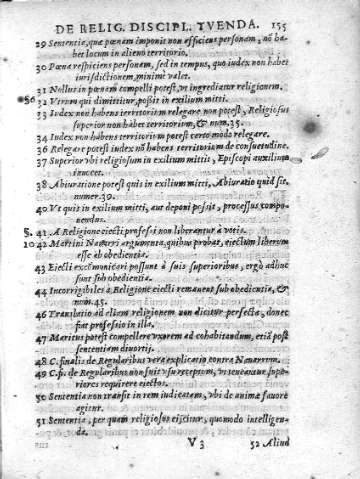 DE RELIG. DISCIPL. TVENDA. 155
29 Sententia, quæ pœnam imponit non afficiens personam, nõ ha-
bet locum in alieno territorio.
30 Pœna respiciens personam, sed in tempus, quo iudex non habet
iurisdictionem, minimè valet.
31 Nullus in pœnam compelli potest, vt ingrediatur religionem.
32 Vtrum qui dimittitur, possit in exilium mitti.
33 Iudex non habens territorium relegare non potest, Religiosus
superior non habet territorium, & num. 35.
34 Iudex non habens territorium potest certo modo relegare.
36 Relegare potest iudex nõ habens territorium de consuetudine.
37 Superior vbi religiosum in exilium mittit, Episcopi auxilium
inuocet.
38 Abiuratione potest quis in exilium mitti, Abiuratio quid sit,
numer. 39.
40 Vt quis in exilium mitti, aut deponi possit, processus compo-
nendus.
41 A Religione eiecti professi non liberantur à votis.
42 Martini Nauarri argumenta, quibus probat, eiectum liberum
esse ab obedientia.
43 Eiecti excommunicari possunt à suis superioribus, ergò adhuc
sunt sub obedientia.
44 Incorrigibiles à Religione eiecti remanent sub obedientia, &
num. 45.
46 Translatio ad aliam religionem non dicitur perfecta, donec
fiat professio in illa.
47 Maritus potest compellere vxorem ad cohabitandum, etiã post
sententiam diuortij.
48 C. finalis de Regularibus vera explicatio contra Nauarrum.
49 C. fi. de Regularibus non fuit vsu receptum, vt teneantur supe-
riores requirere eiectos.
50 Sententia non transit in rem iudicatam, vbi de animæ fauore
agitur.
51 Sententia, per quam religiosus eijcitur, quomodo intelligen-
da.
V 3 52 Aliud